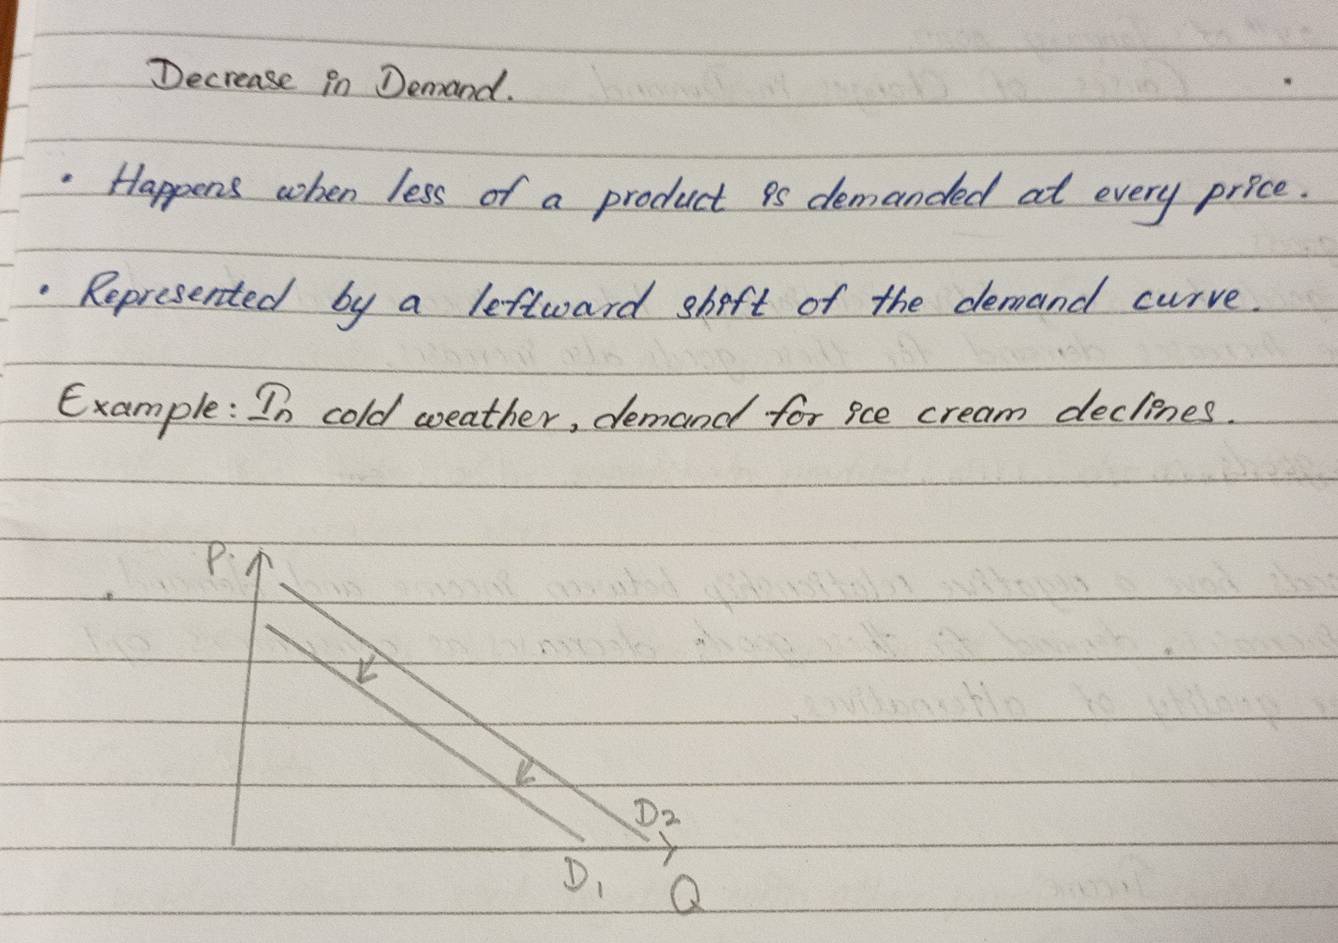 Decrease in Demand.
• Happens when less of a product is demanded at every price.
• Represented by a leftward shift of the demand curve.
Example: In cold weather, demand for ice cream declines.
P
D2
D1
Q